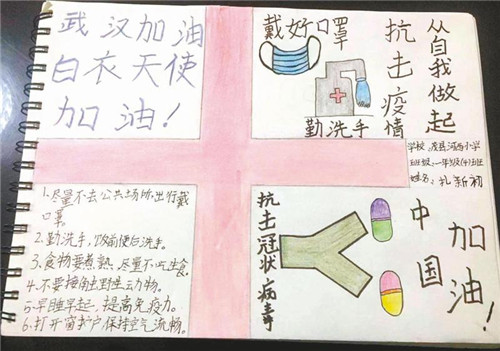 武汉加油
白衣天使
加油!
戴好口罩
勤洗手
抗击疫情
从自我做起
一年级(4)班
姓名:
抗击冠状病毒
中国
加油!
1.尽量不去公共场所出行戴
口罩。
2.勤洗手,饭前便后洗手。
3.食物要煮熟,尽量不吃生食。
4.不要接触野生动物。
5.早睡早起,提高免疫力。
6.打开窗护户,保持空气流畅。